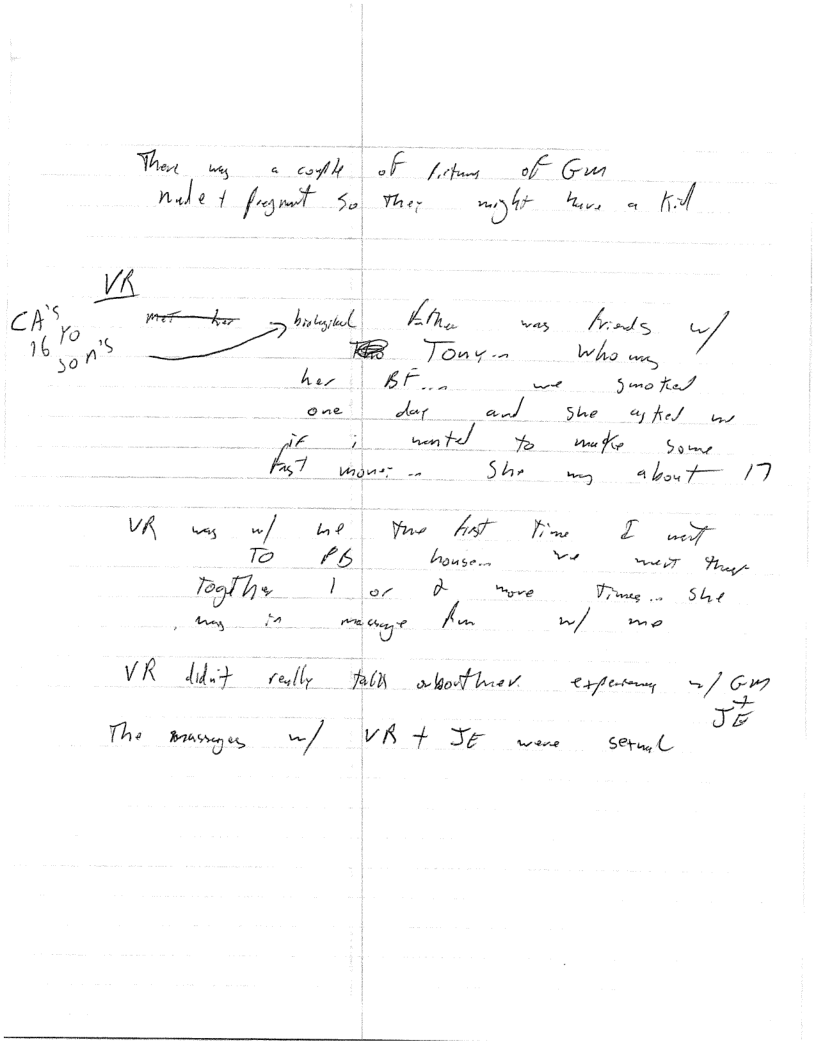 There was a couple of pictures of GM
nude + pregnant so they might have a kid
VR
CA's
16 YO
son's
met her biological father was friends w/
Tony.. who was
her BF... we smoked
one day and she asked me
if i wanted to make some
fast money.. She was about 17
VR was w/ me the first time I went
TO PB house.. we went there
together 1 or 2 more times.. she
was in massage rm w/ me
VR didn't really talk about her experiences w/ GM
+
JE
The massages w/ VR + JE were sexual